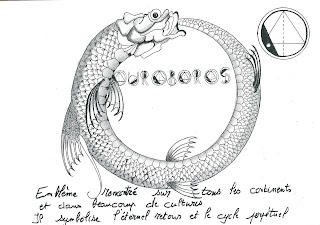 OUROBOROS
Emblème rencontré sur tous les continents
et dans beaucoup de cultures
Il symbolise l'éternel retour et le cycle perpétuel